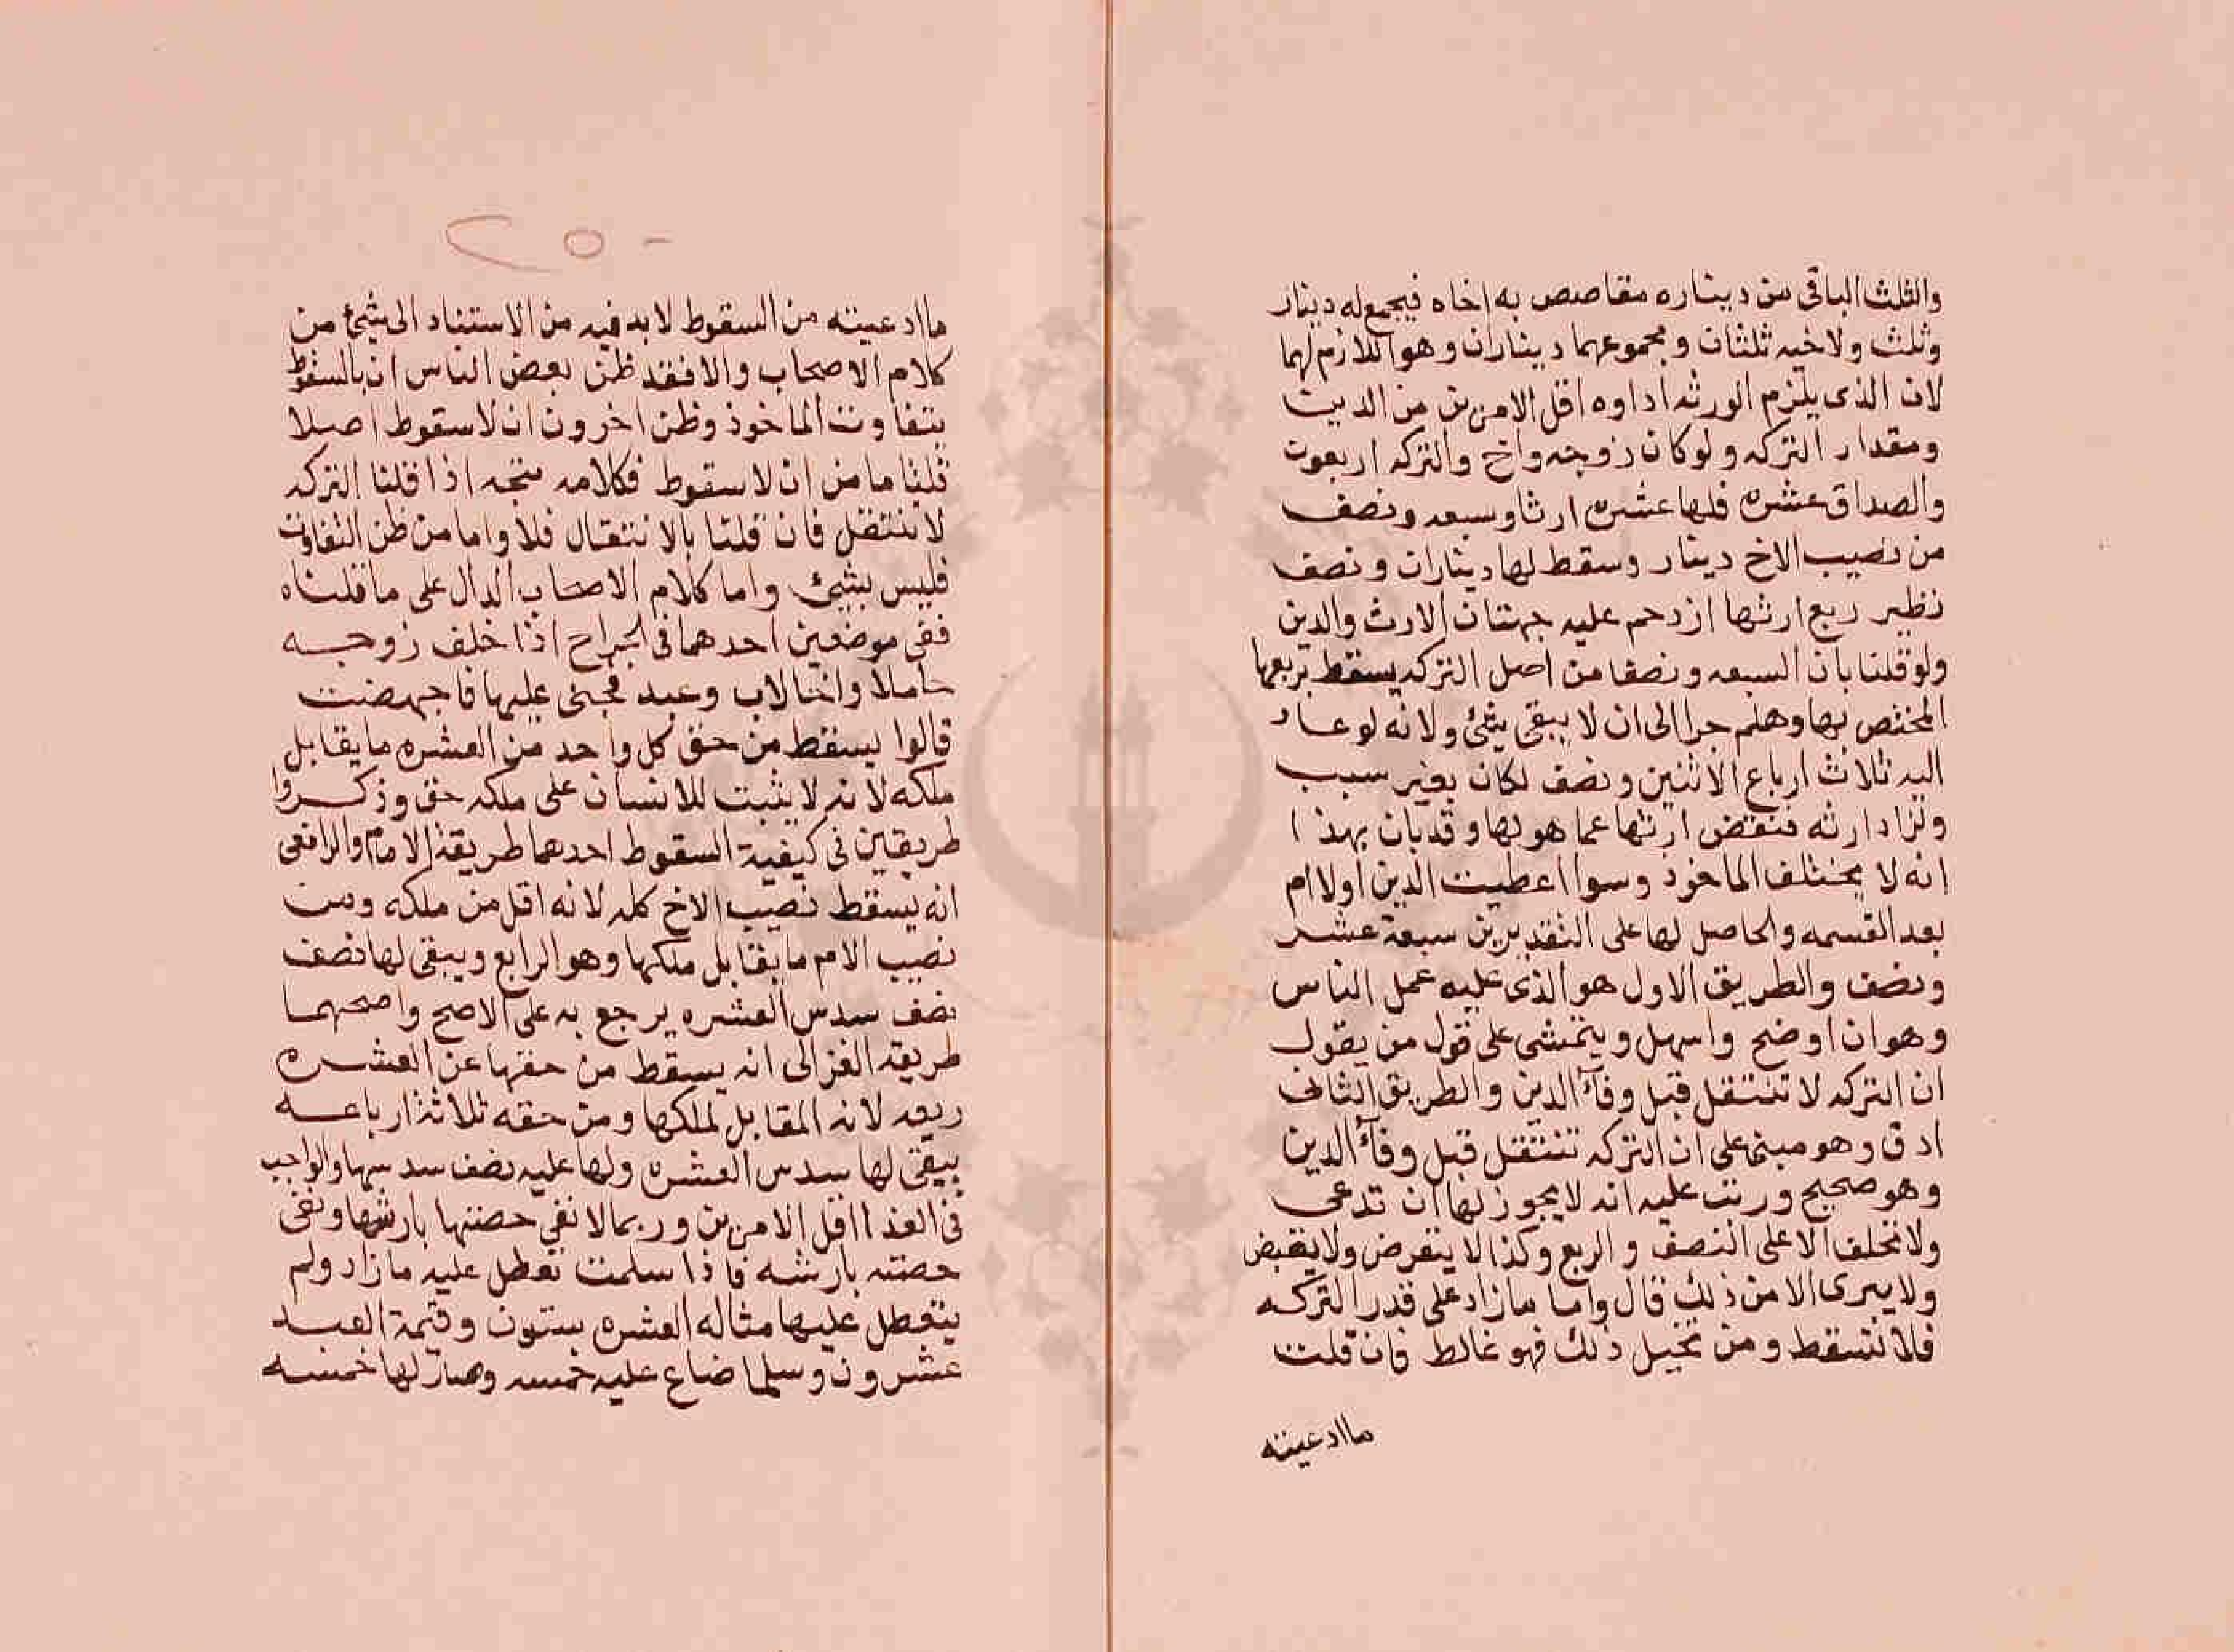 والثلث الباقى من ديناره مقاصص به اخاه فيجمع له دينار
وثلث ولاخيه ثلثان ومجموعهما ديناران وهو اللازم لهما
لان الذى يلزم الورثه اداوه اقل الامرين من الدين
ومقدار التركه ولو كان زوجه واخ والتركه اربعون
والصداق عشره فلها عشره ارثا وسبعه ونصف
من نصيب الاخ دينار وسقط لها ديناران ونصف
نظير ربع ارثها ازدحم عليه جهتان الارث والدين
ولو قلنا بان السبعه ونصفا من اصل التركه يسقط بربعها
المختص بها وهلم جرا الى ان لا يبقى شئ ولانه لو عاد
اليه ثلاث ارباع الاثنين ونصف لكان بغير سبب
ولزاد ارثه فنقص ارثها عما هو لها وقد بان بهذا
انه لا يختلف الماخوذ وسوا اعطيت الدين اولا ام
بعد القسمه والحاصل لها على التقديرين سبعة عشر
ونصف والطريق الاول هو الذى عليه عمل الناس
وهو ان اوضح واسهل ويتمشى على قول من يقول
ان التركه لا تنتقل قبل وفآ الدين والطريق الثانى
ادق وهو مبنى على ان التركه تنتقل قبل وفآ الدين
وهو صحيح ورتب عليه انه لا يجوز لها ان تدعى
ولا تحلف الا على النصف والربع وكذا لا يتعرض ولا يقبض
ولا يبرى الا من ذلك قال واما ما زاد على قدر التركه
فلا تسقط ومن تخيل ذلك فهو غالط فان قلت
ما ادعيته
٢٥٠
ما ادعيته من السقوط لابد فيه من الاستناد الى شئ من
كلام الاصحاب والا فقد ظن بعض الناس ان بالسقوط
يتفاوت الماخوذ وظن اخرون ان لا سقوط اصلا
قلنا ما من ان لا سقوط فكلامه متجه اذا قلنا التركه
لا تنتقل فان قلنا بالانتقال فلا واما من ظن التفاوت
فليس بشئ واما كلام الاصحاب الدال على ما قلناه
ففى موضعين احدهما فى الجراح اذا خلف زوجه
حاملا واخا لاب وعبد فجنى عليها فاجهضت
قالوا يسقط من حق كل واحد من العشره ما يقابل
ملكه لانه لا يثبت للانسان على ملكه حق وذكروا
طريقين فى كيفية السقوط احدهما طريقة الامام والرافعى
انه يسقط نصيب الاخ كله لانه اقل من ملكه ومن
نصيب الام ما يقابل ملكها وهو الرابع ويبقى لها نصف
نصف سدس العشره يرجع به على الاصح واصحهما
طريقه الغزالى انه يسقط من حقها عن العشره
ربعه لانه المقابل لملكها ومن حقه ثلاثة ارباعه
يبقى لها سدس العشره ولها عليه نصف سدسها والواجب
فى الفدا اقل الامرين وربما لا تفى حصتها بارشها وتفى
حصته بارشه فاذا سلمت تعطل عليه ما زاد ولم
يتعطل عليها مثاله العشره ستون وقيمة العبد
عشرون وسلما ضاع عليه خمسه وصار لها خمسه